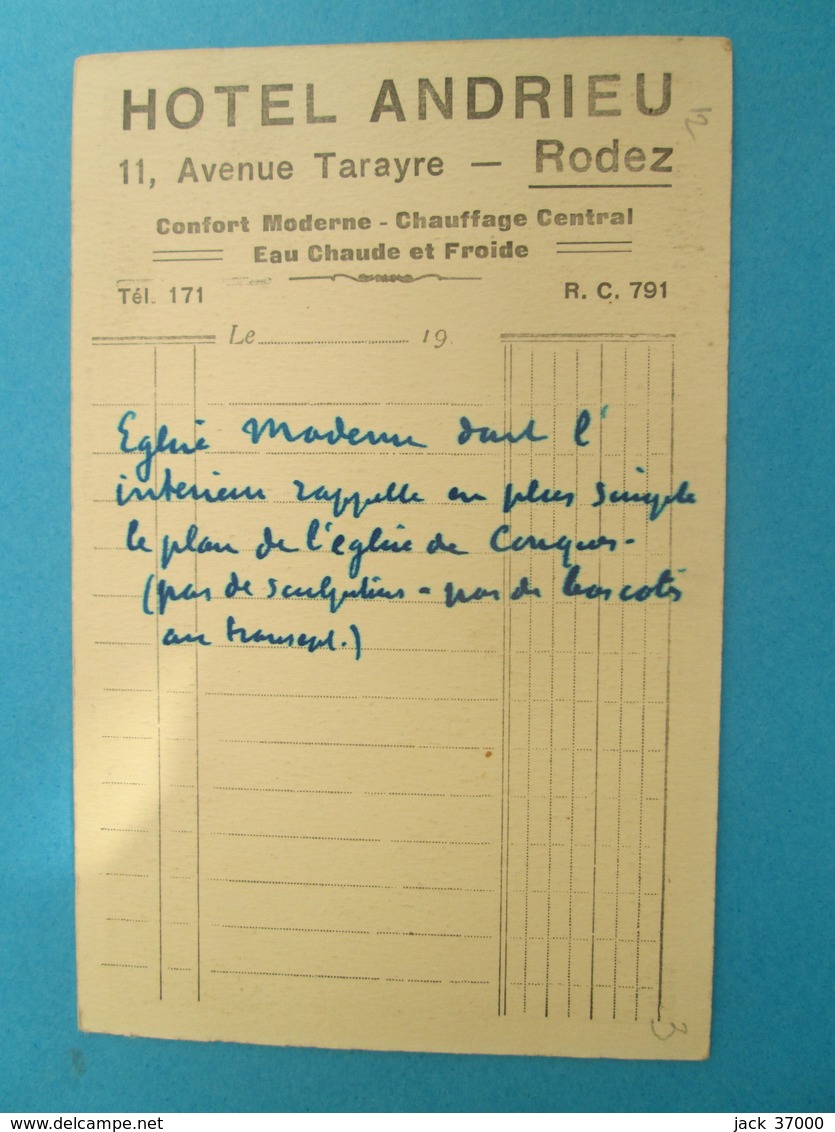 HOTEL ANDRIEU
11, Avenue Tarayre — Rodez
Confort Moderne - Chauffage Central
Eau Chaude et Froide
Tél. 171 R. C. 791
Le 19
Eglise Moderne dont l'
interieur rappelle en plus simple
le plan de l'eglise de Conques-
(pas de sculptures - pas de bas cotés
au transept.)
3
jack 37000